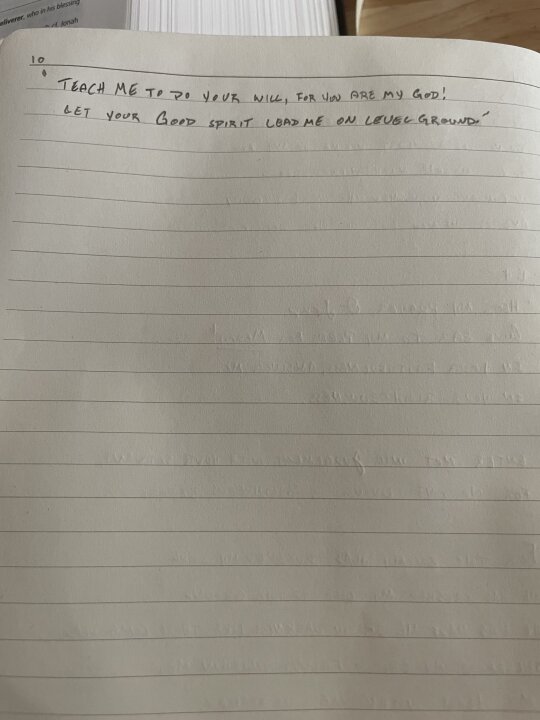 eliverer, who in his blessing
cf. Jonah
10
" TEACH ME TO DO YOUR WILL, FOR YOU ARE MY GOD!
LET YOUR GOOD SPIRIT LEAD ME ON LEVEL GROUND."